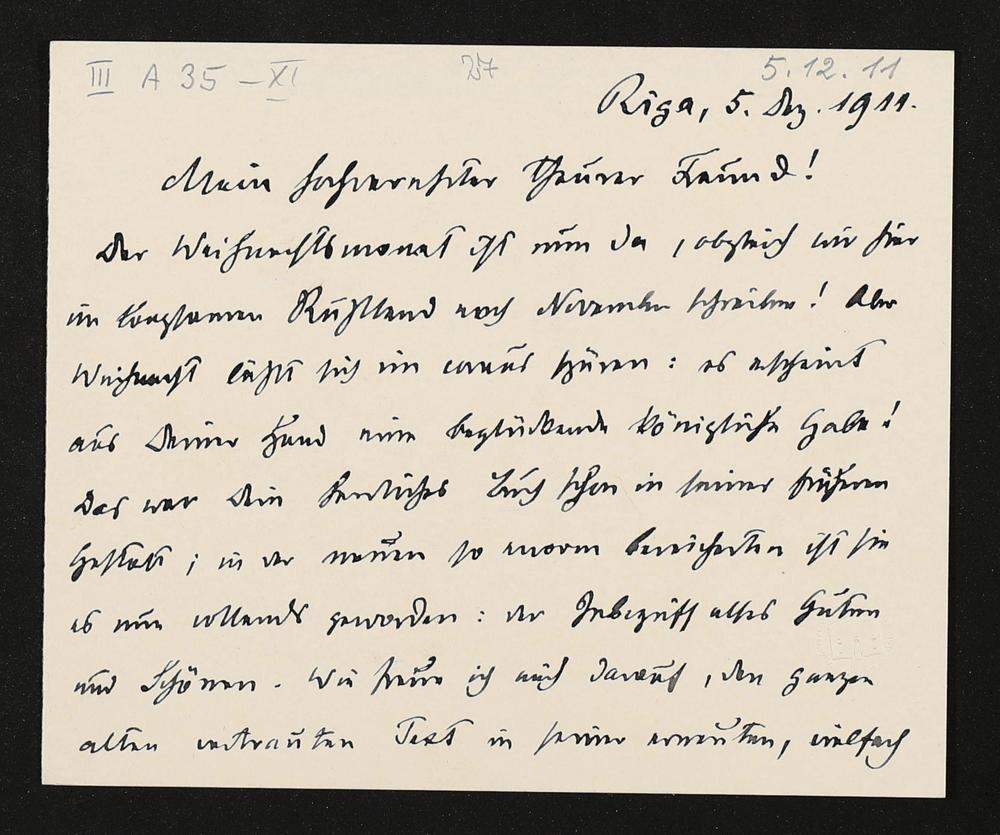 III A 35 – XI
27
5.12.11
Riga, 5. Dez. 1911.
Mein hochverehrter theurer Freund!
Der Weihnachtsmonat ist nun da, obgleich wir hier
im langsamen Rußland noch November schreiben! Aber
Weihnacht läßt sich im voraus spüren: es erscheint
aus Deiner Hand eine beglückende königliche Gabe!
Das war Dein herrliches Buch schon in seiner früheren
Gestalt; in der neuen so enorm bereicherten ist sie
es nun vollends geworden: der Inbegriff alles Guten
und Schönen. Wie freue ich mich darauf, den ganzen
alten vertrauten Text in seiner erneuten, vielfach